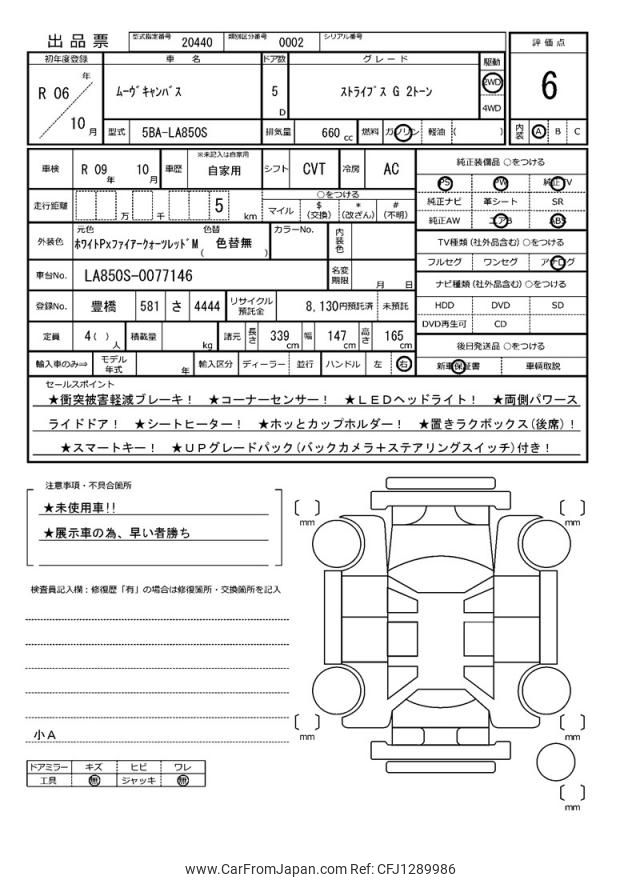 出品票 型式指定番号 20440 類別区分番号 0002 シリアル番号
評価点
6
内装 A B C
初年度登録 車名 ドア数 グレード 駆動
R 06 年 10 月 ムーヴキャンバス 5 D ストライプス G 2トーン 2WD 4WD
型式 5BA-LA850S 排気量 660 cc 燃料 ガソリン 軽油 ( )
車検 R 09 年 10 月 車歴 ※未記入は自家用 自家用 シフト CVT 冷房 AC
走行距離 万 千 5 km ○をつける
マイル $ (交換) * (改ざん) # (不明)
外装色 元色 色替
ホワイトPxファイアークォーツレッドM ( 色替無 ) カラーNo. 内装色
車台No. LA850S-0077146 名変期限 月 日
登録No. 豊橋 581 さ 4444 リサイクル預託金 8,130円預託済 未預託
定員 4( )人 積載量 kg 諸元 長さ 339 cm 幅 147 cm 高さ 165 cm
輸入車のみ⇒ モデル年式 年 輸入区分 ディーラー 並行 ハンドル 左 右
純正装備品 ○をつける
PS PW 純正TV
純正ナビ 革シート SR
純正AW エアB ABS
TV種類 (社外品含む) ○をつける
フルセグ ワンセグ アナログ
ナビ種類 (社外品含む) ○をつける
HDD DVD SD
DVD再生可 CD
後日発送品 ○をつける
新車保証書 車輌取説
セールスポイント
★衝突被害軽減ブレーキ！ ★コーナーセンサー！ ★ＬＥＤヘッドライト！ ★両側パワース
ライドドア！ ★シートヒーター！ ★ホッとカップホルダー！ ★置きラクボックス(後席)！
★スマートキー！ ★ＵＰグレードパック(バックカメラ＋ステアリングスイッチ)付き！
注意事項・不具合箇所
★未使用車!!
★展示車の為、早い者勝ち
検査員記入欄：修復歴「有」の場合は修復箇所・交換箇所を記入
小A
ドアミラー キズ ヒビ ワレ
工具 無 ジャッキ 無
[ ] mm
[ ] mm
[ ] mm
[ ] mm
[ ] mm
www.CarFromJapan.com Ref: CFJ1289986